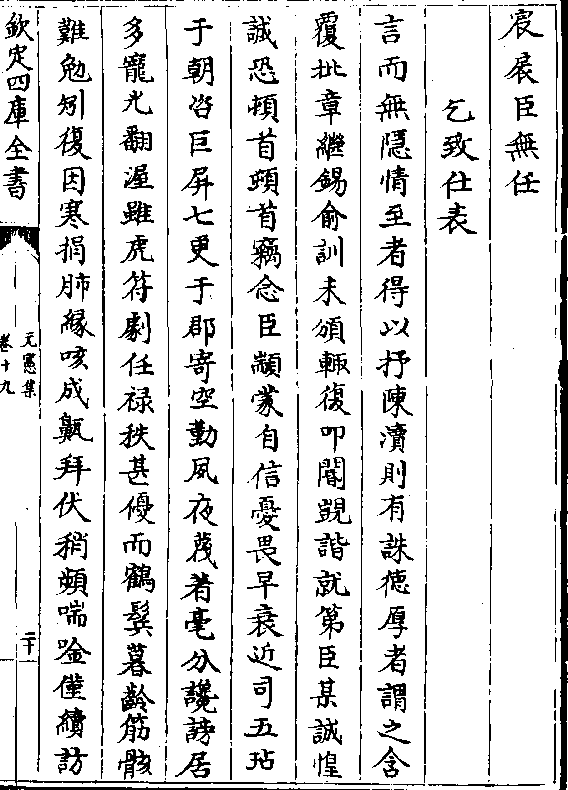 宸扆臣無任
乞致仕表
言而無隱情至者得以抒陳瀆則有誅徳厚者謂之含
覆批章繼錫俞訓未頒輙復叩閽覬諧就第臣某誠惶
誠恐頓首頓首竊念臣顓蒙自信憂畏早衰近司五玷
于朝咨巨屏七更于郡寄空勤夙夜蔑著毫分讒謗居
多寵光翻渥雖虎符劇任禄秩甚優而鶴髮暮齡筋骸
難勉矧復因寒損肺縁咳成鼽拜伏稍頻喘唫僅續訪
欽定四庫全書
元憲集
卷十九
二十